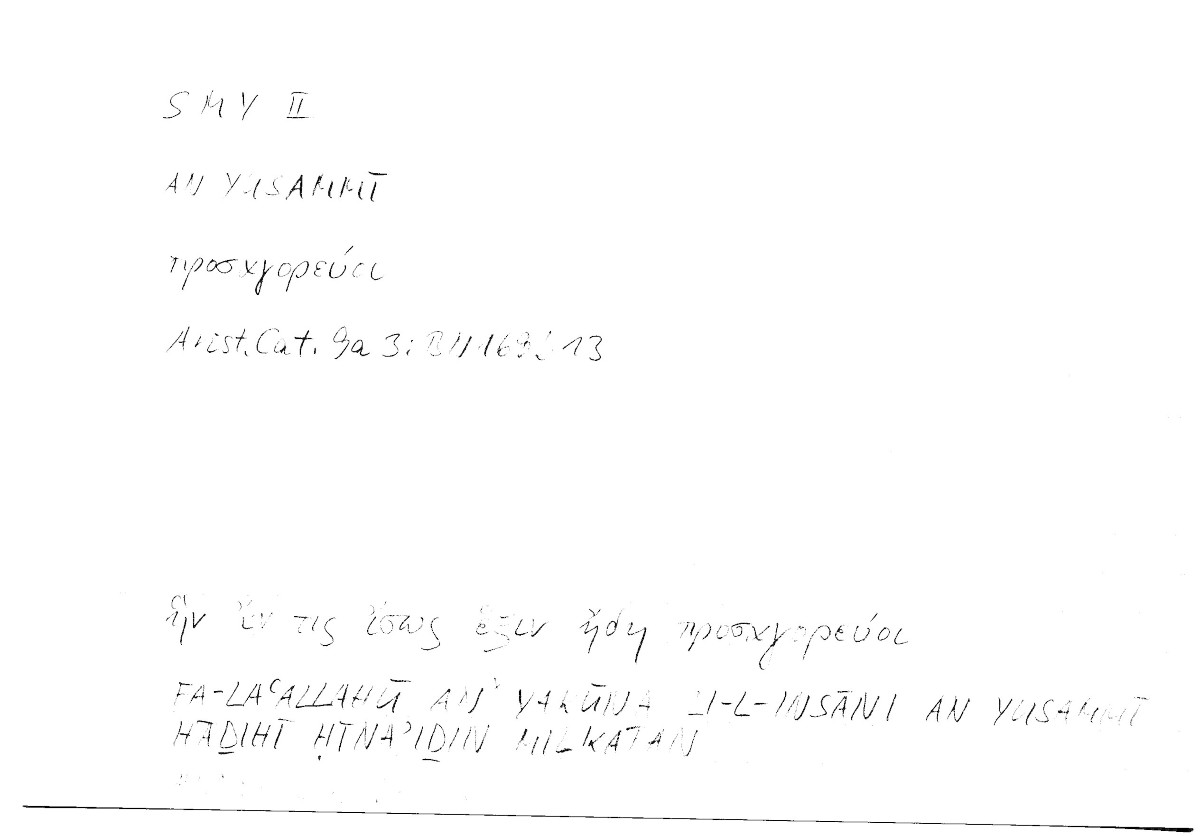 SMY II
AN YUSAMMĪ
προσαγορεύοι
Arist. Cat. 9a 3: 13
ἣν ἄν τις ἴσως ἕξιν ἤδη προσαγορεύοι
FA-LAʿALLAHŪ AN YAKŪNA LI-L-INSĀNI AN YUSAMMĪ
HĀḎIHĪ ḤĪNAʾIḎIN MILKATAN